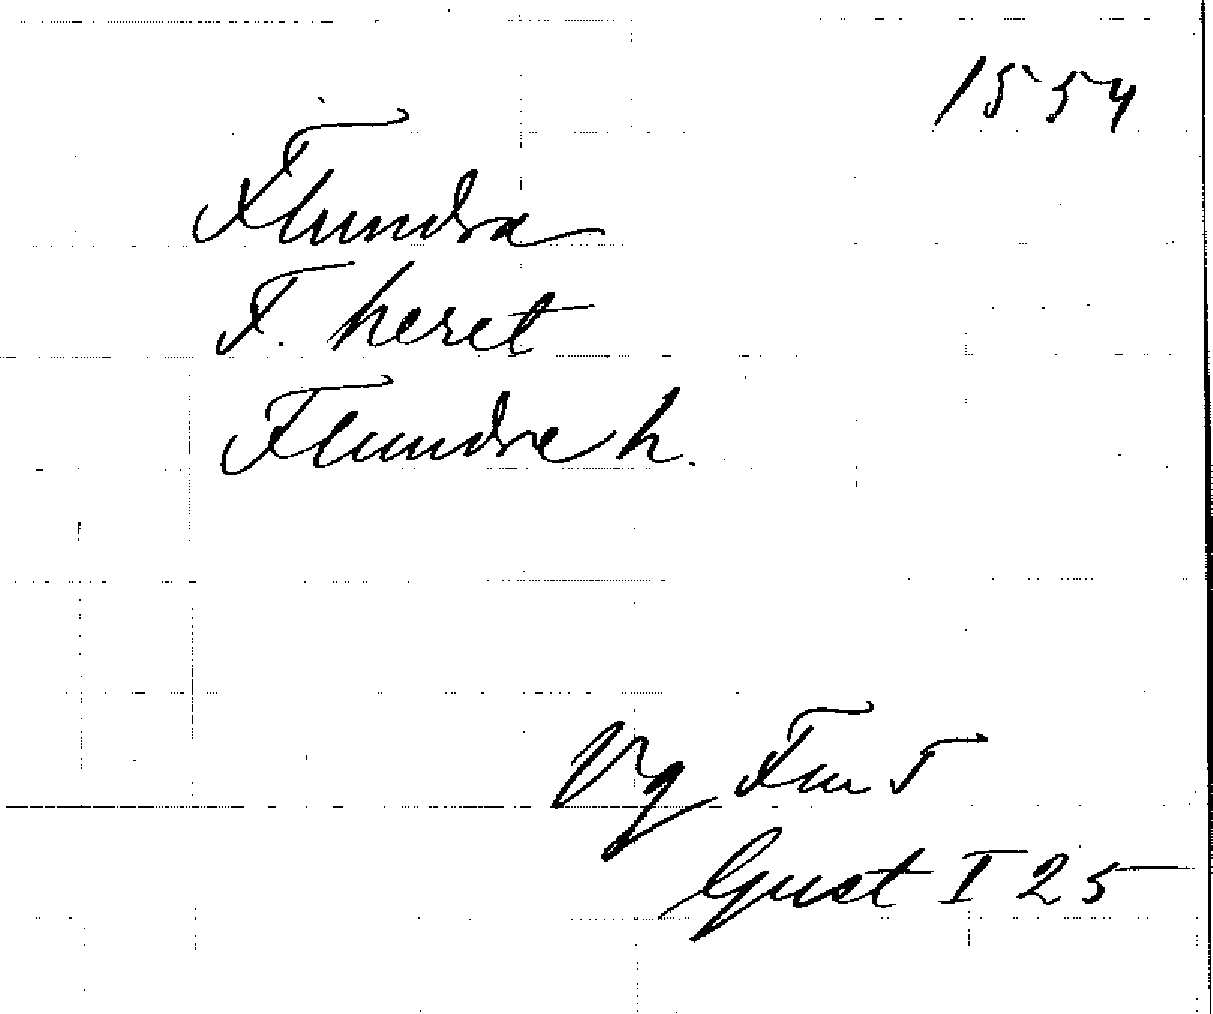 1554
Flundra
F. heret
Flundre h.
Vg
Gust I 25